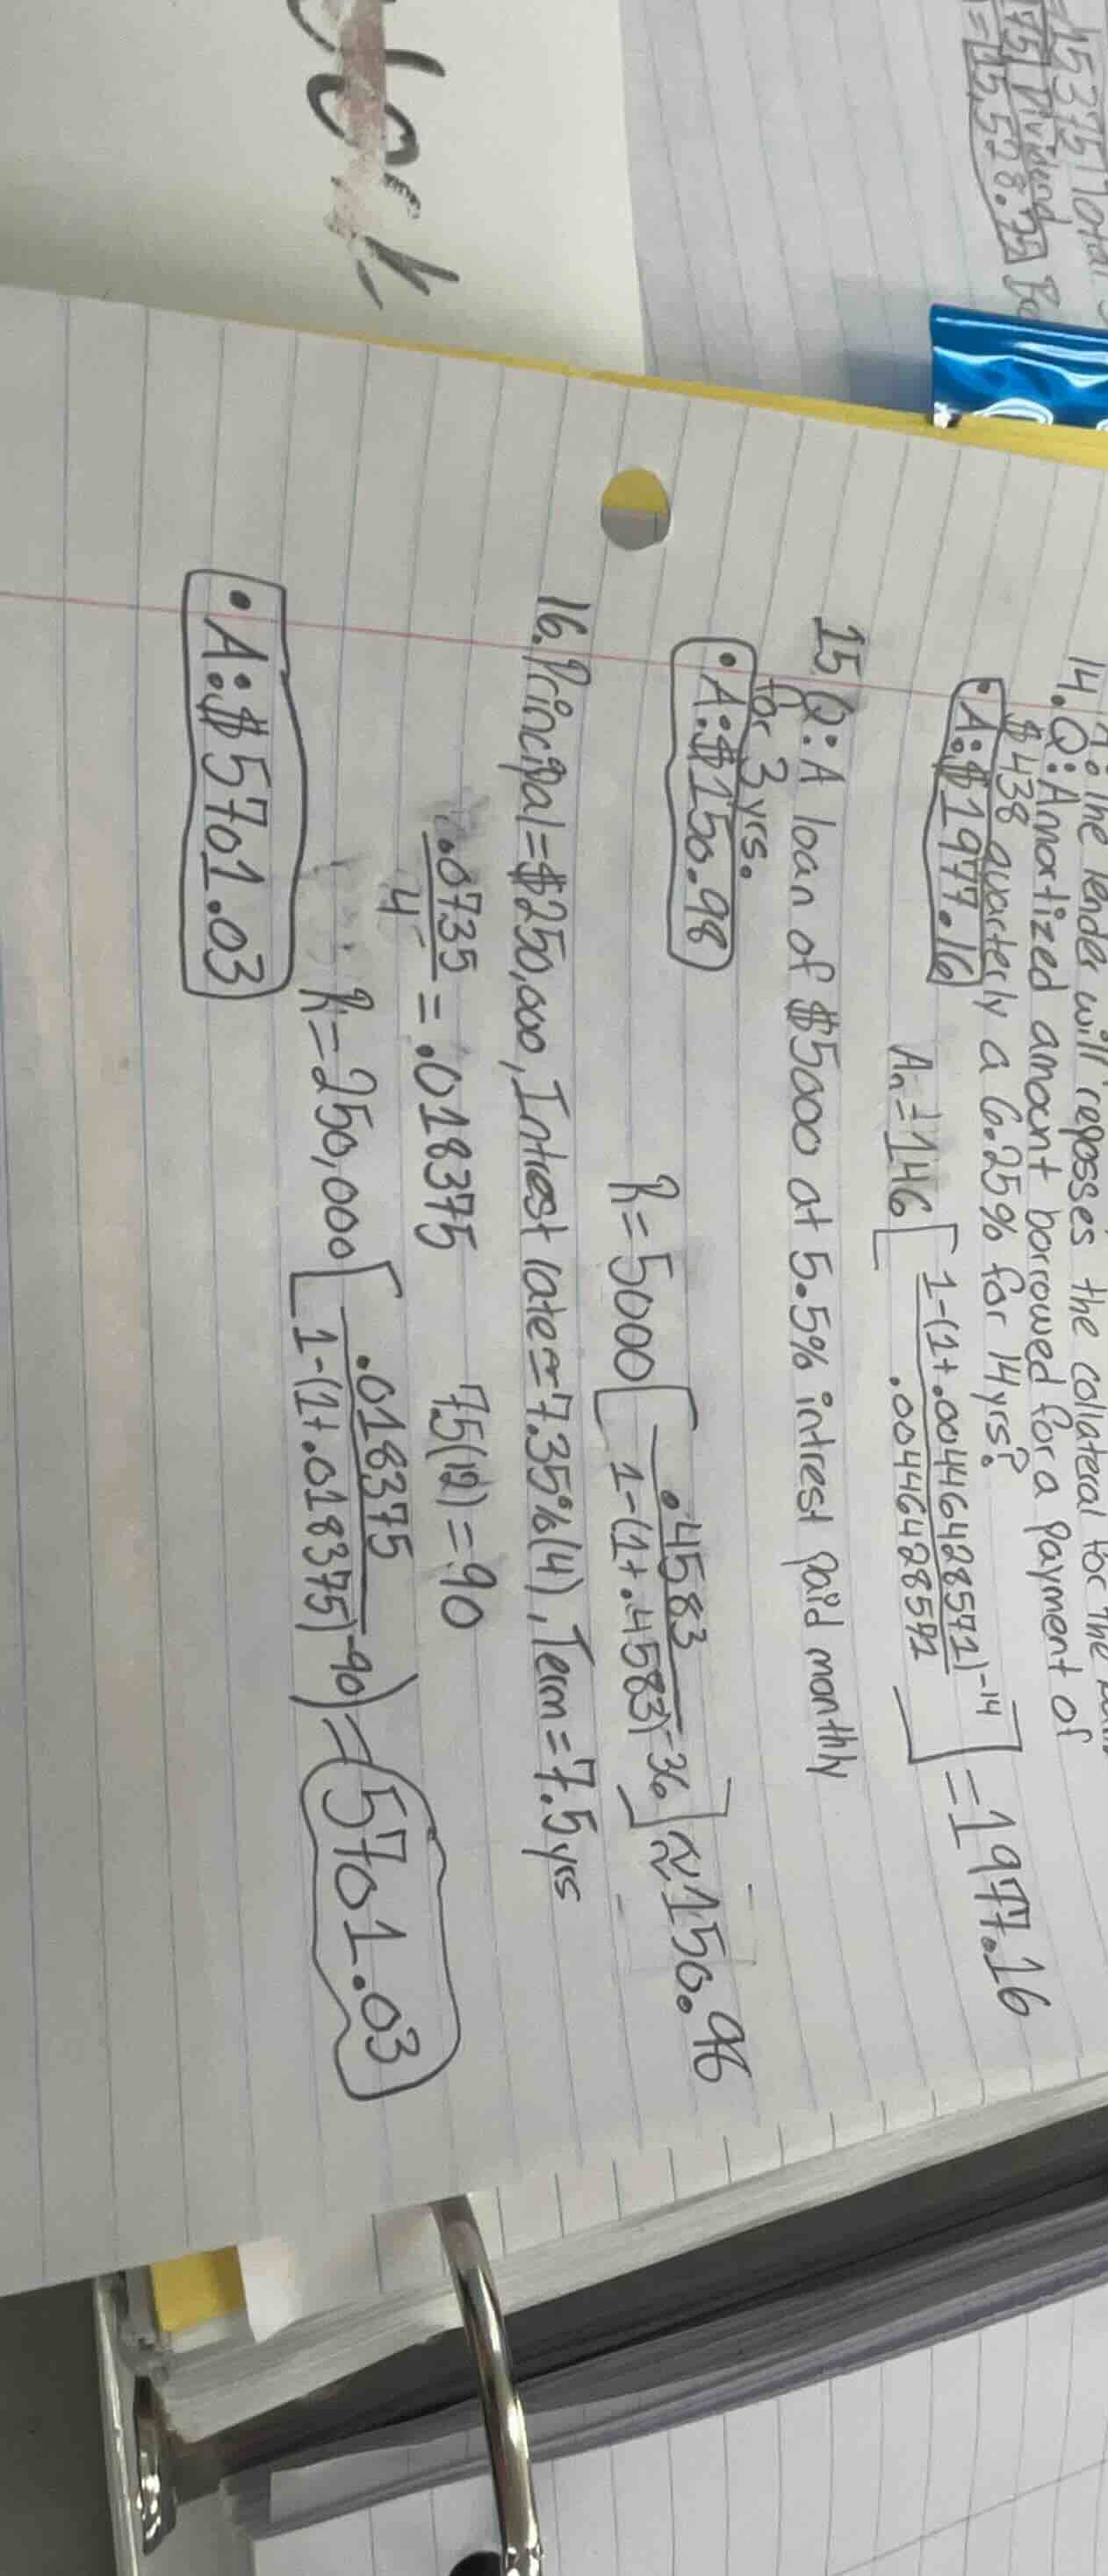 =15375 Total
75 Dividend
=15,578.75
14. A: The lender will reposses the collateral for the
Q: Amortized amount borrowed for a payment of
$438 quarterly a 6.25% for 14yrs?
• A: $1977.16
An=146[1-(1+.00446428571)^-14 / .00446428571] =1977.16
15 Q: A loan of $5000 at 5.5% intrest paid monthly
for 3 yrs.
• A: $150.98
R=5000[.4583 / 1-(1+.4583)^-36] ≈150.98
16. Principal=$250,000, Intrest rate=7.35%(4), Term=7.5yrs
.0735 / 4 = .018375 7.5(12)=90
R=250,000[.018375 / 1-(1+.018375)^-90) =5701.03
• A: $5701.03